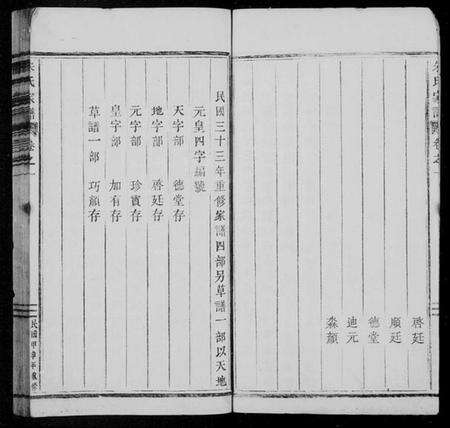 啓廷
順廷
德堂
迪元
淼顏
民國三十三年重修家譜四部另草譜一部以天地
元皇四字編號
天字部 德堂存
地字部 啓廷存
元字部 珍賓存
皇字部 加有存
草譜一部 巧顏存
氏家譜
卷之一
民國甲申年重修